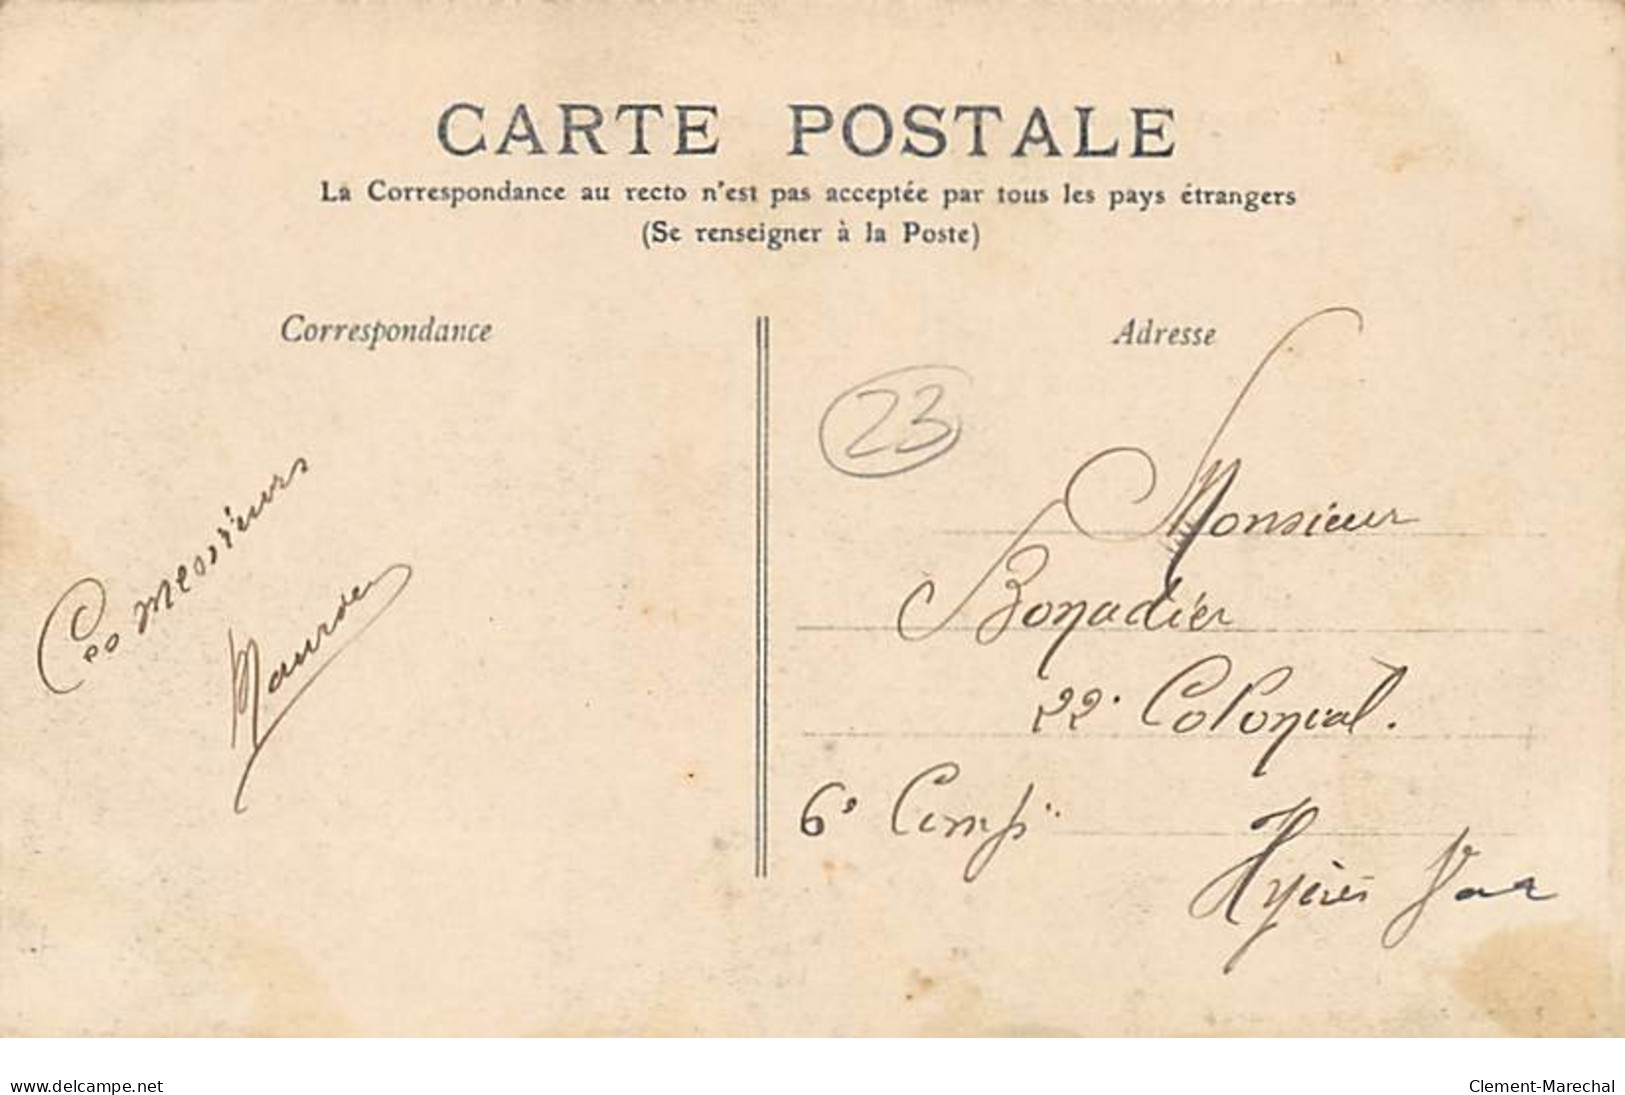 CARTE POSTALE
La Correspondance au recto n'est pas acceptée par tous les pays étrangers
(Se renseigner à la Poste)
Correspondance
Ces messieurs
Adresse
23
Monsieur
Bonadier
22e Colonial.
6e Comp.
Hyères Var
delcampe.net
Clement-Marechal